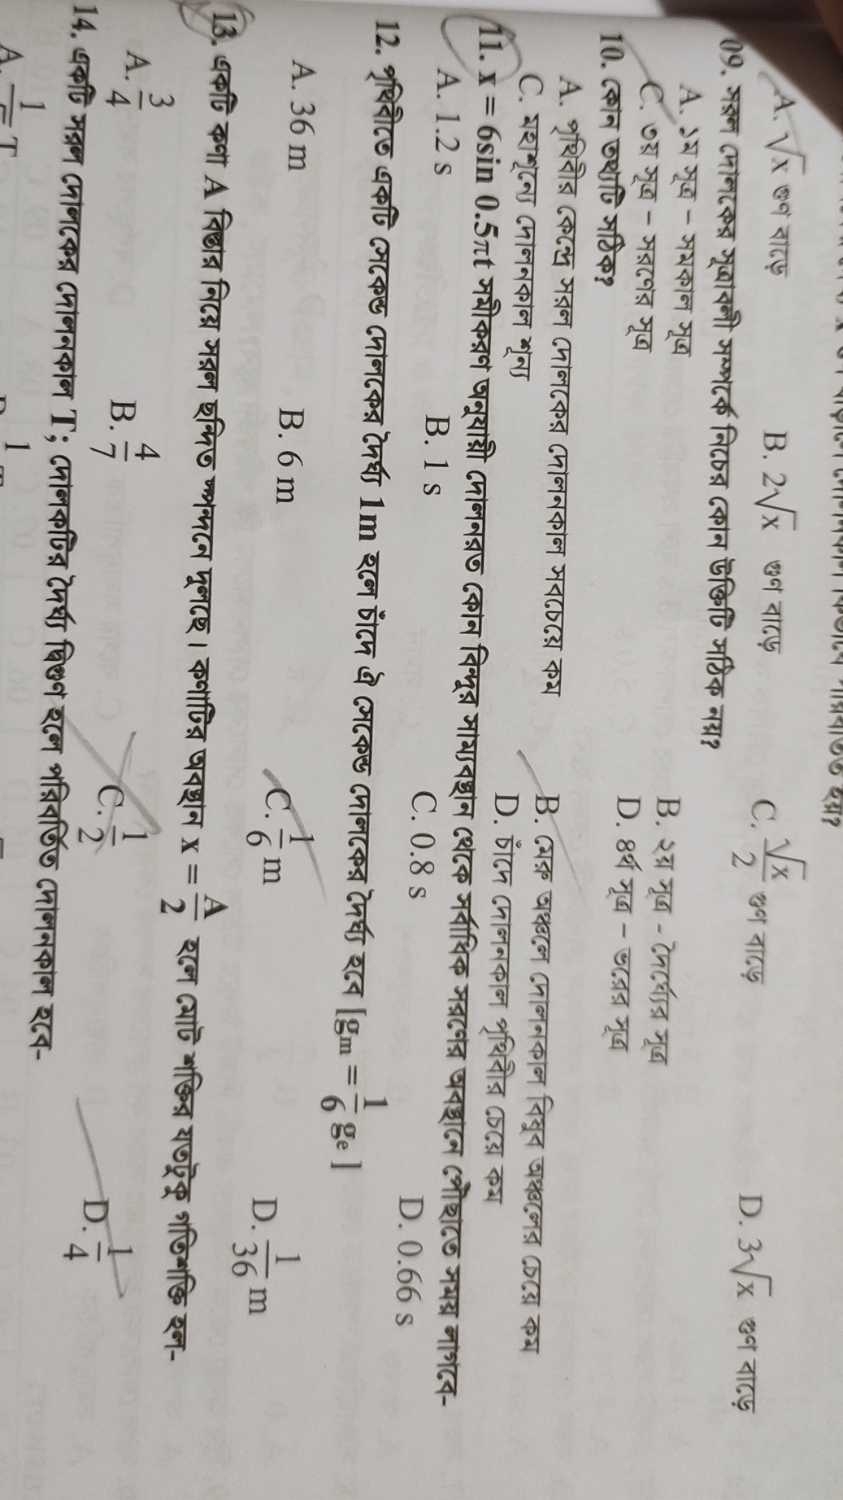 A. √x গুণ বাড়ে B. 2√x গুণ বাড়ে C. √x/2 গুণ বাড়ে D. 3√x গুণ বাড়ে
09. সরল দোলকের সূত্রাবলী সম্পর্কে নিচের কোন উক্তিটি সঠিক নয়?
A. ১ম সূত্র – সমকাল সূত্র B. ২য় সূত্র - দৈর্ঘ্যের সূত্র
C. ৩য় সূত্র – সরণের সূত্র D. ৪র্থ সূত্র – ভরের সূত্র
10. কোন তথ্যটি সঠিক?
A. পৃথিবীর কেন্দ্রে সরল দোলকের দোলনকাল সবচেয়ে কম B. মেরু অঞ্চলে দোলনকাল বিষুব অঞ্চলের চেয়ে কম
C. মহাশূন্যে দোলনকাল শূন্য D. চাঁদে দোলনকাল পৃথিবীর চেয়ে কম
11. x = 6sin 0.5πt সমীকরণ অনুযায়ী দোলনরত কোন বিন্দুর সাম্যবস্থান থেকে সর্বাধিক সরণের অবস্থানে পৌঁছাতে সময় লাগবে-
A. 1.2 s B. 1 s C. 0.8 s D. 0.66 s
12. পৃথিবীতে একটি সেকেন্ড দোলকের দৈর্ঘ্য 1m হলে চাঁদে ঐ সেকেন্ড দোলকের দৈর্ঘ্য হবে [gₘ = 1/6 gₑ]
A. 36 m B. 6 m C. 1/6 m D. 1/36 m
13. একটি কণা A বিস্তার নিয়ে সরল ছন্দিত স্পন্দনে দুলছে। কণাটির অবস্থান x = A/2 হলে মোট শক্তির যতটুকু গতিশক্তি হল-
A. 3/4 B. 4/7 C. 1/2 D. 1/4
14. একটি সরল দোলকের দোলনকাল T; দোলকটির দৈর্ঘ্য দ্বিগুণ হলে পরিবর্তিত দোলনকাল হবে-